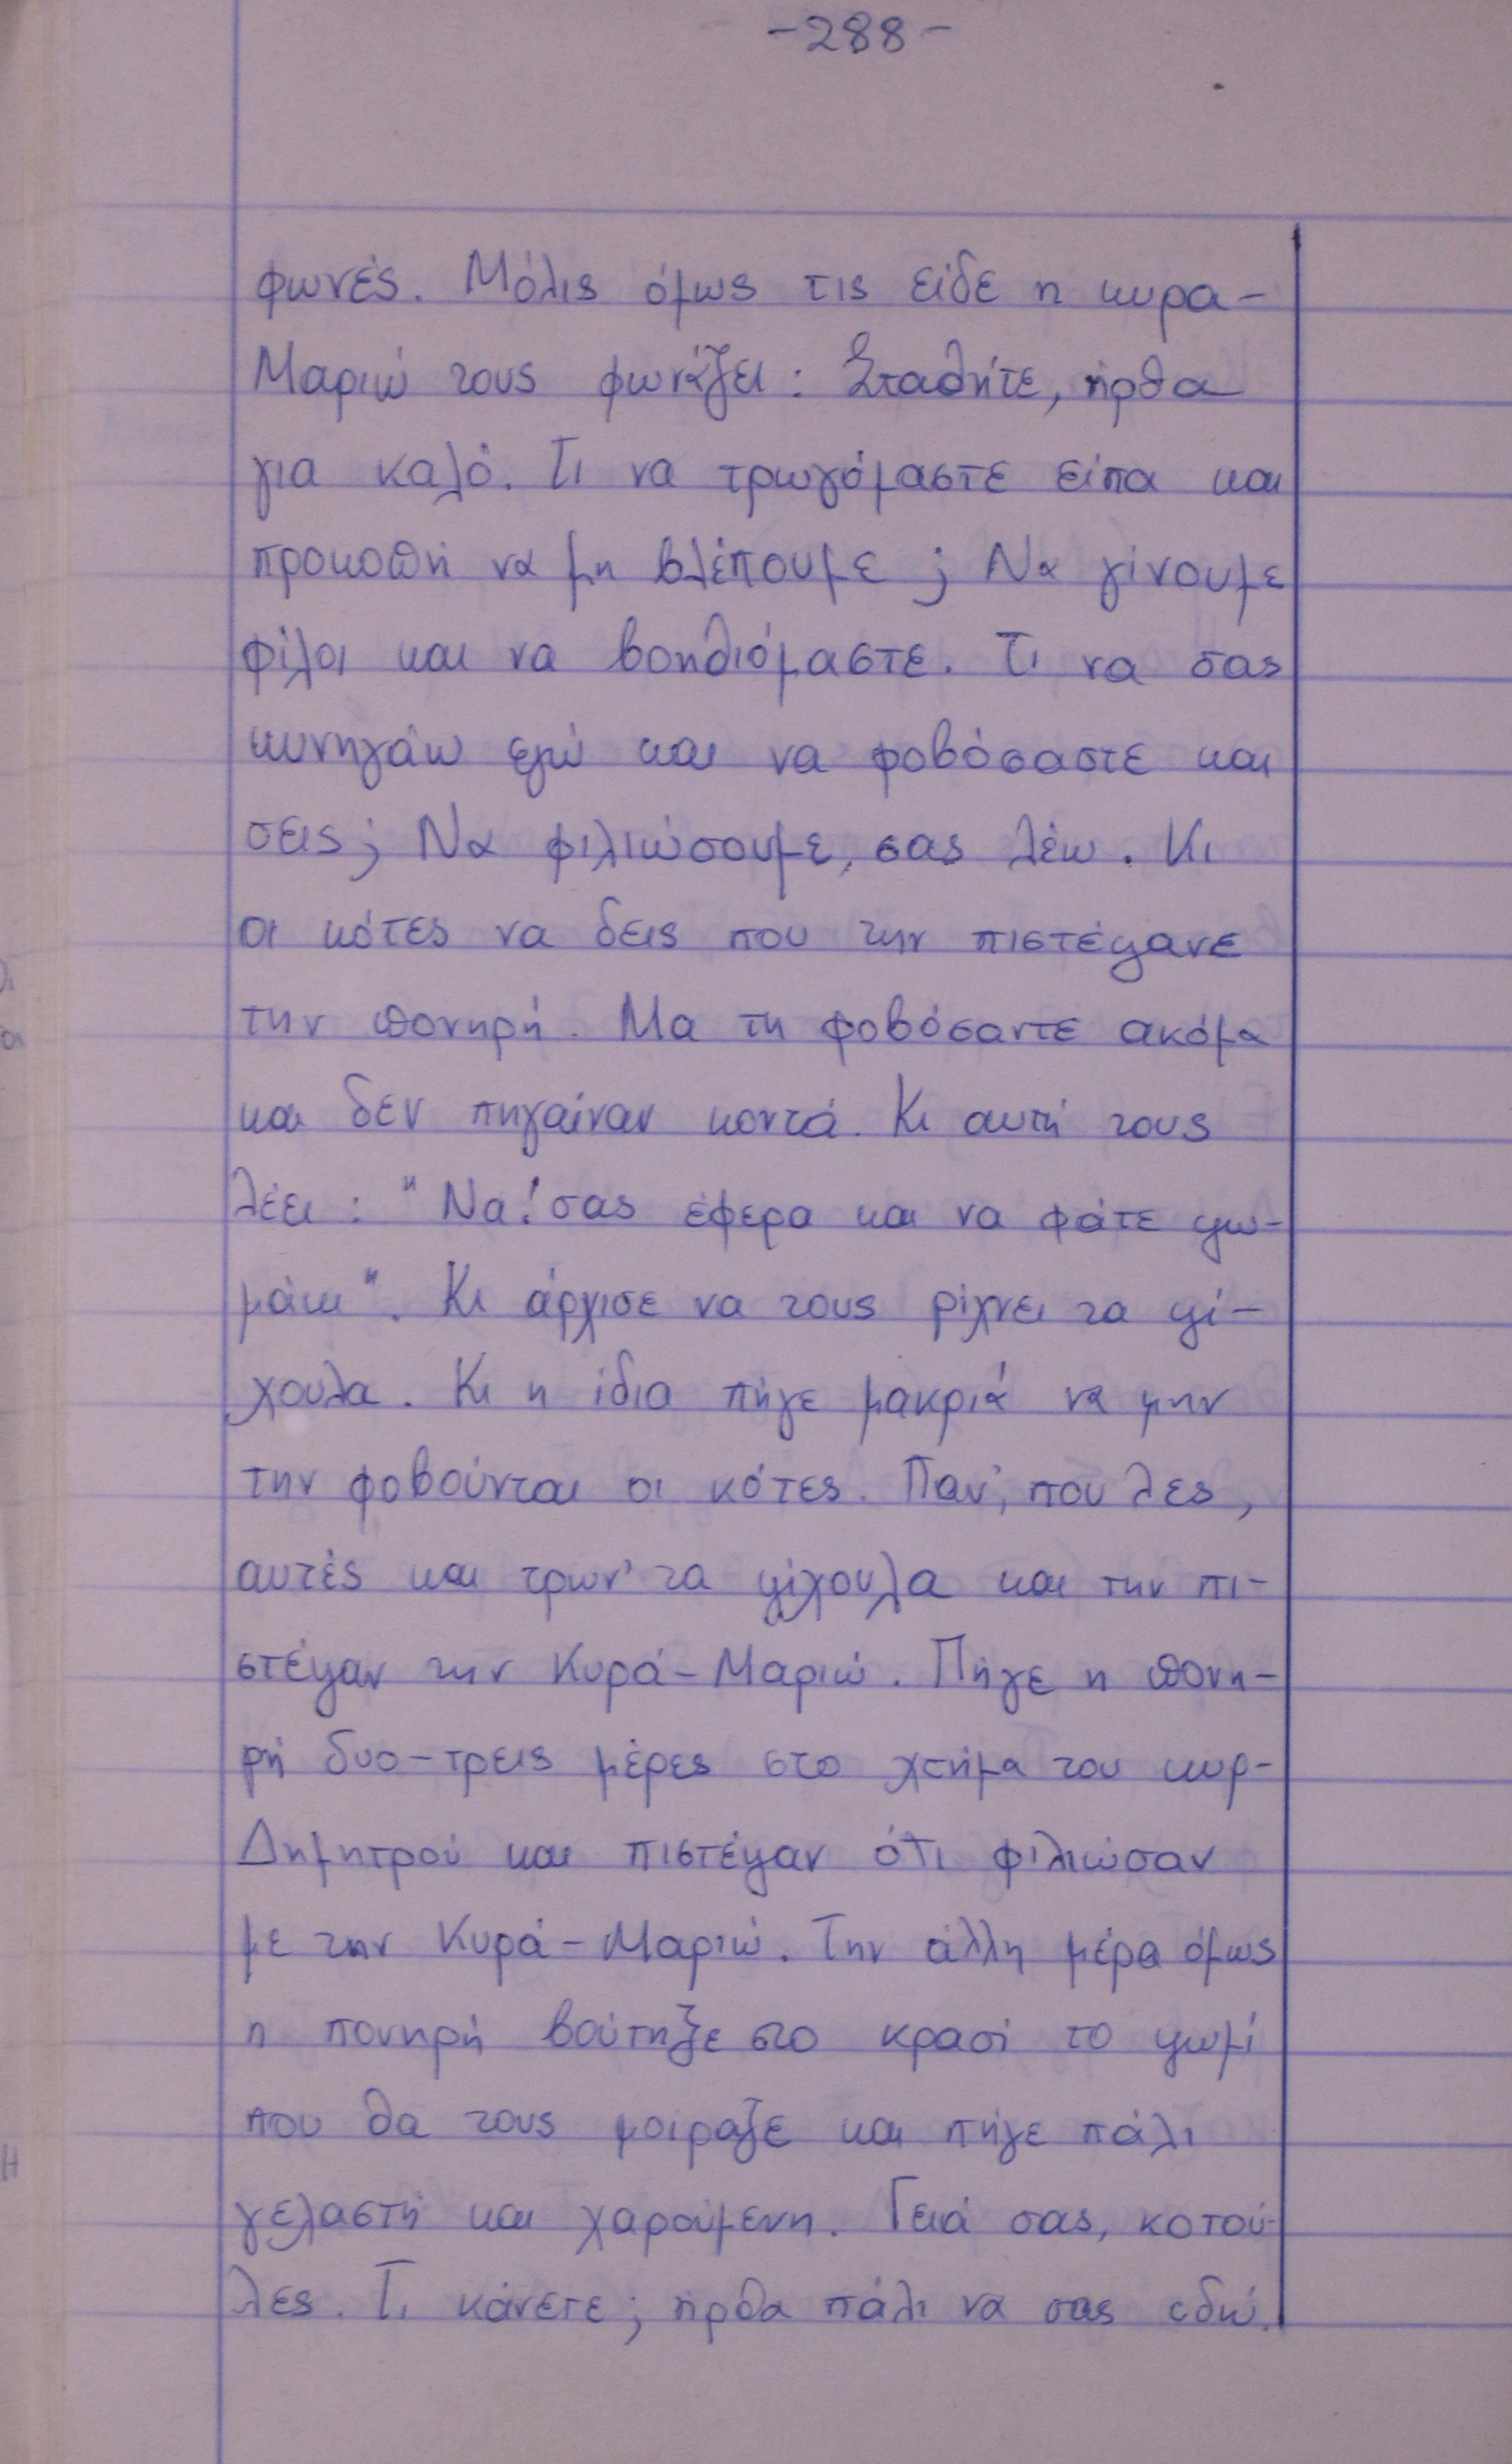 -288-
φωνές. Μόλις όμως τις είδε η κυρα-
Μαριώ τους φωνάζει: Σταθήτε, ήρθα
για καλό. Τι να τρωγόμαστε είπα και
προκοπή να μη βλέπουμε; Να γίνουμε
φίλοι και να βοηθιόμαστε. Τι να σας
κυνηγάω εγώ και να φοβόσαστε και
σεις; Να φιλιώσουμε, σας λέω. Κι
οι κότες να δεις που την πιστέψανε
την πονηρή. Μα τη φοβόσαντε ακόμα
και δεν πηγαίναν κοντά. Κι αυτή τους
λέει: "Να! σας έφερα και να φάτε ψω-
μάκι". Κι άρχισε να τους ρίχνει τα ψί-
χουλα. Κι η ίδια πήγε μακριά να μην
την φοβούνται οι κότες. Παν', που λες,
αυτές και τρων' τα ψίχουλα και την πι-
στέψαν την Κυρά-Μαριώ. Πήγε η πονη-
ρή δυο-τρεις μέρες στο χτήμα του κυρ-
Δημητρού και πιστέψαν ότι φιλιώσαν
με την Κυρά-Μαριώ. Την άλλη μέρα όμως
η πονηρή βούτηξε στο κρασί το ψωμί
που θα τους μοίραζε και πήγε πάλι
γελαστή και χαρούμενη. Γειά σας, κοτού-
λες. Τι κάνετε; ήρθα πάλι να σας εδώ.